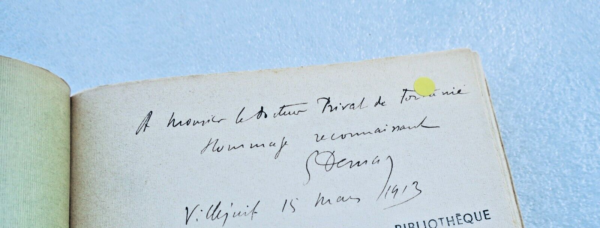 A Monsieur le docteur Privat de Fortunié
Hommage reconnaissant
Villejuif 15 mars 1913
BIBLIOTHÈQUE